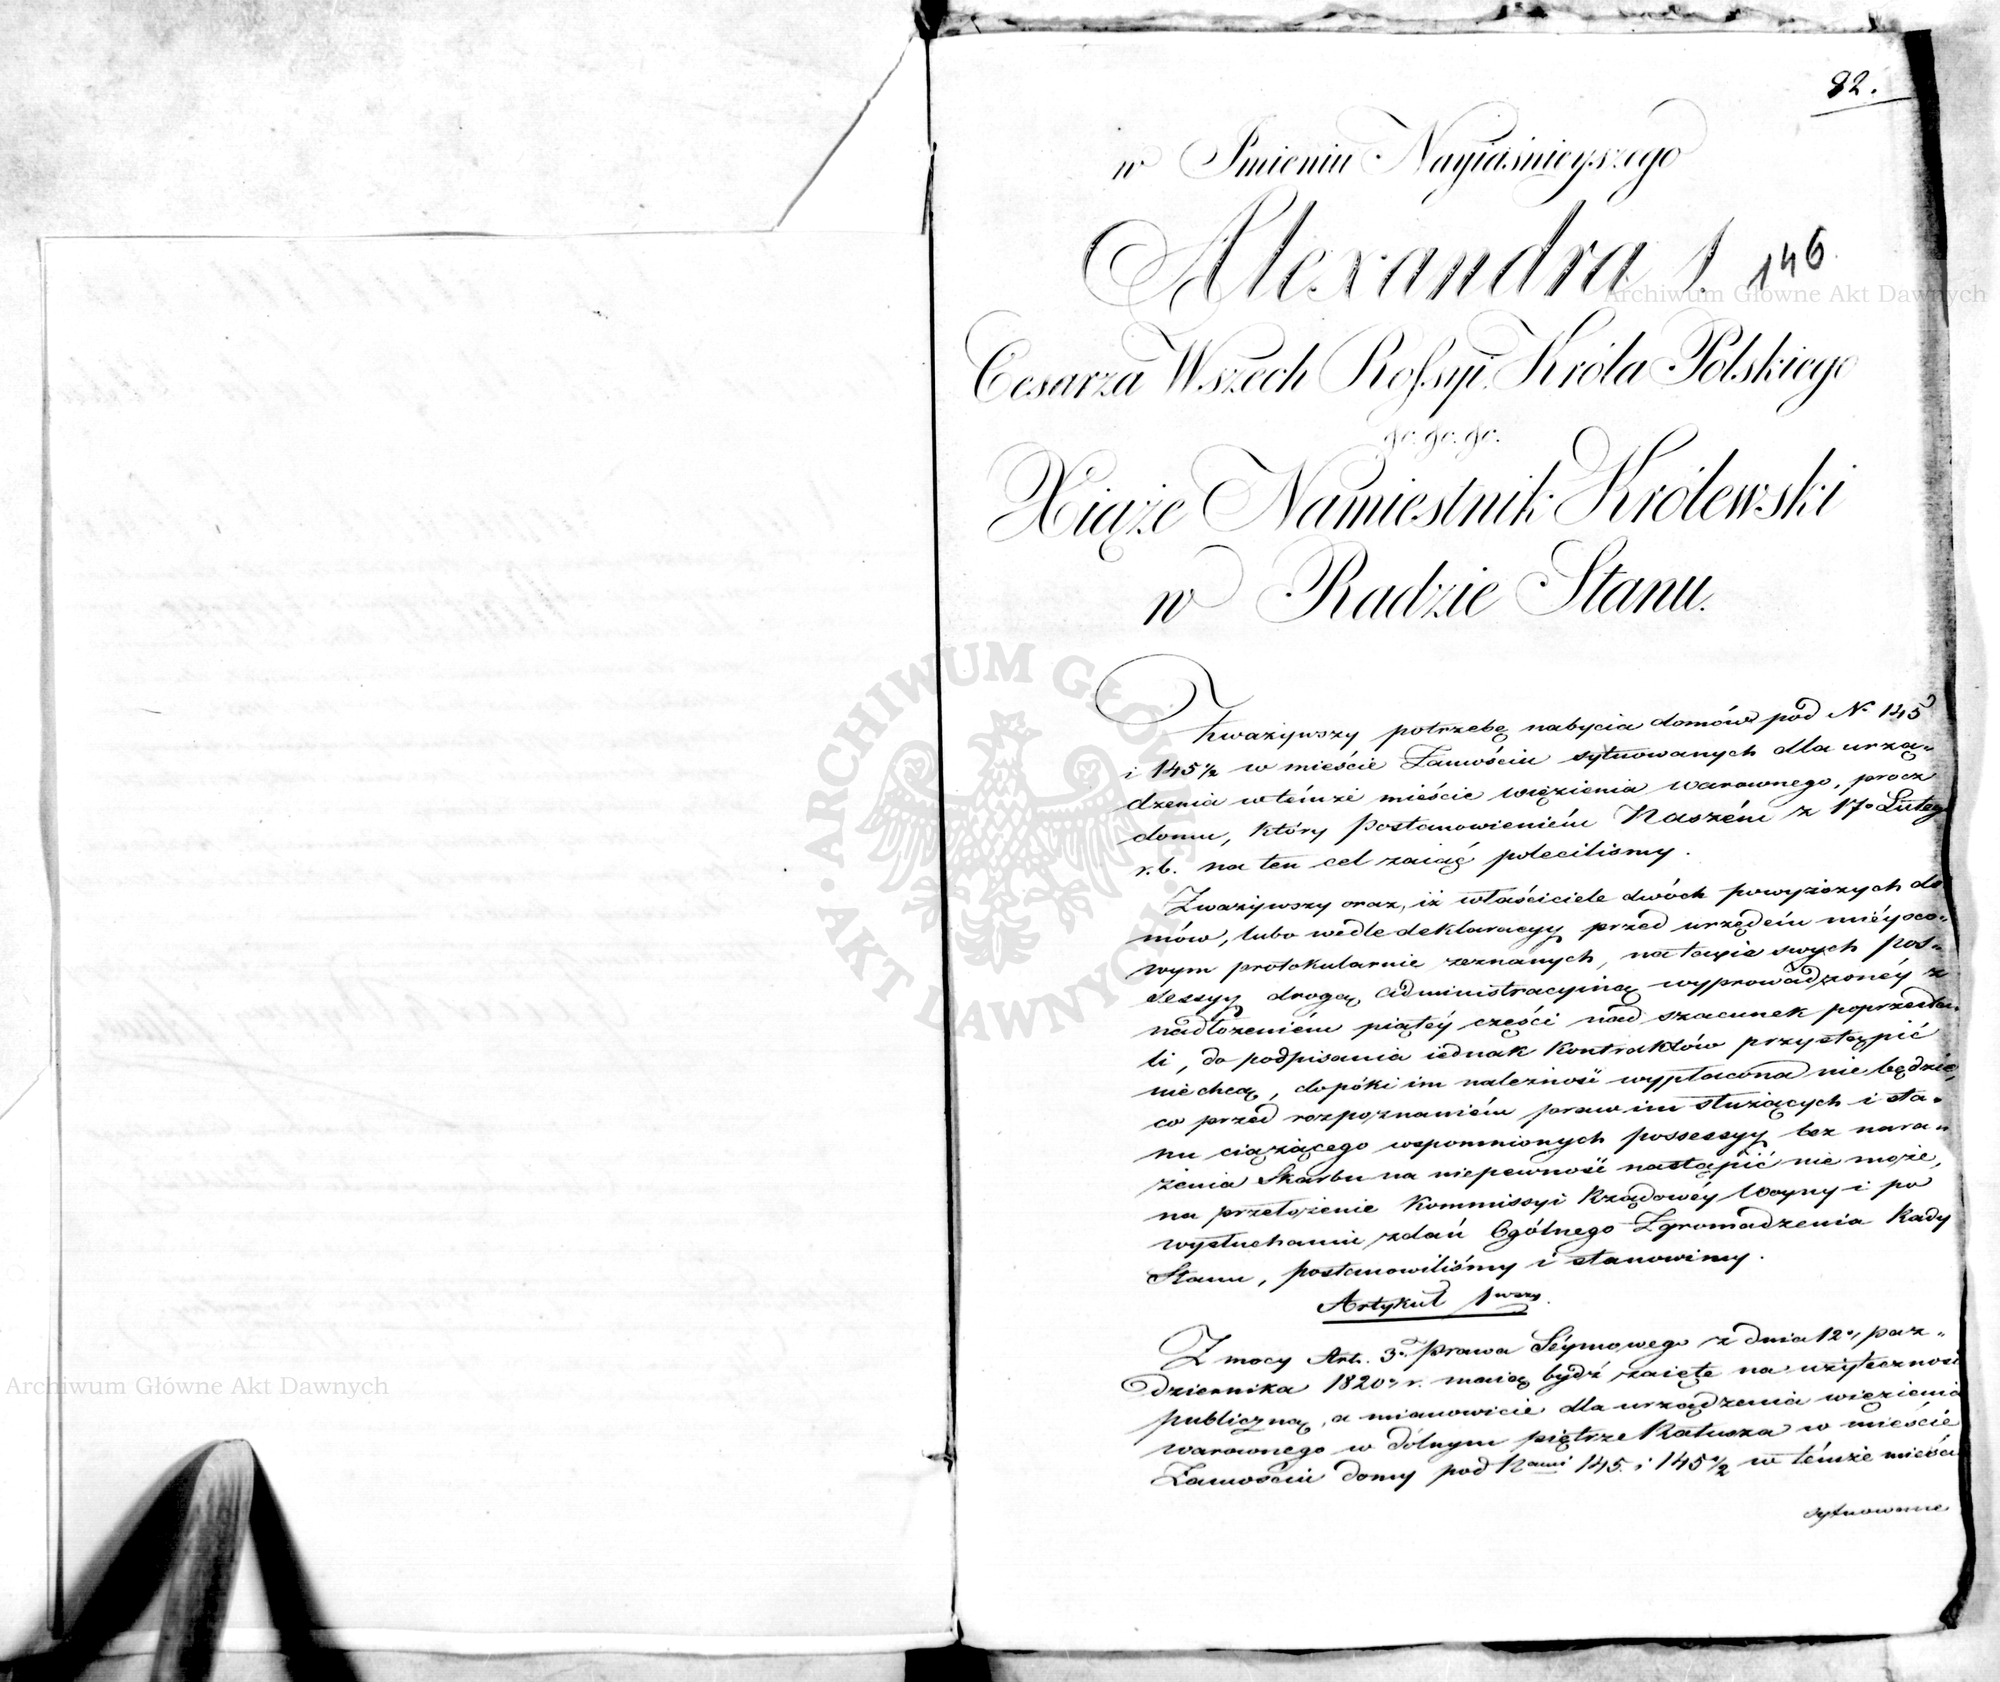 82.
w Imieniu Nayiaśnieyszego
Alexandra I.
146
Cesarza Wszech Rossyi, Króla Polskiego
&c. &c. &c.
Xiąże Namiestnik Królewski
w Radzie Stanu.
Zważywszy potrzebę nabycia domów pod No 145
i 145 1/2 w mieście Zamościu sytuowanych dla urzą-
dzenia w témże mieście więzienia warownego, prócz
domu, który Postanowieniém Naszém z 17o Lutego
r. b. na ten cel zaiąć poleciliśmy.
Zważywszy oraz, iż właściciele dwóch powyższych do
mów, lubo wedle deklaracyy przed urzędem mieysco-
wym protokularnie zeznanych, na taxie swych pos-
sessyy drogą administracyiną wyprowadzonéy z
nadłożeniém piątéy części nad szacunek poprzesta-
li, do podpisania iednak Kontraktów przystąpić
nie chcą, dopóki im należność wypłacona nie będzie,
co przed rozpoznaniém praw im służących i sta-
nu ciążącego wspomnionych possessyy bez nara-
żenia Skarbu na niepewność nastąpić nie może,
na przełożenie Kommissyi Rządowéy Woyny i po
wysłuchaniu zdań Ogólnego Zgromadzenia Rady
Stanu, postanowiliśmy i stanowimy.
Artykuł 1wszy.
Z mocy Art. 3o Prawa Séymowego z dnia 12o, paz-
dziernika 1820o r. maią bydź zaięte na użyteczność
publiczną, a mianowicie dla urządzenia więzienia
warownego w dólnym piętrze Ratusza w mieście
Zamościu domy pod Nami 145. i 145 1/2 w témże mieście
sytuowane
Archiwum Główne Akt Dawnych
Archiwum Główne Akt Dawnych
ARCHIWUM GŁÓWNE AKT DAWNYCH